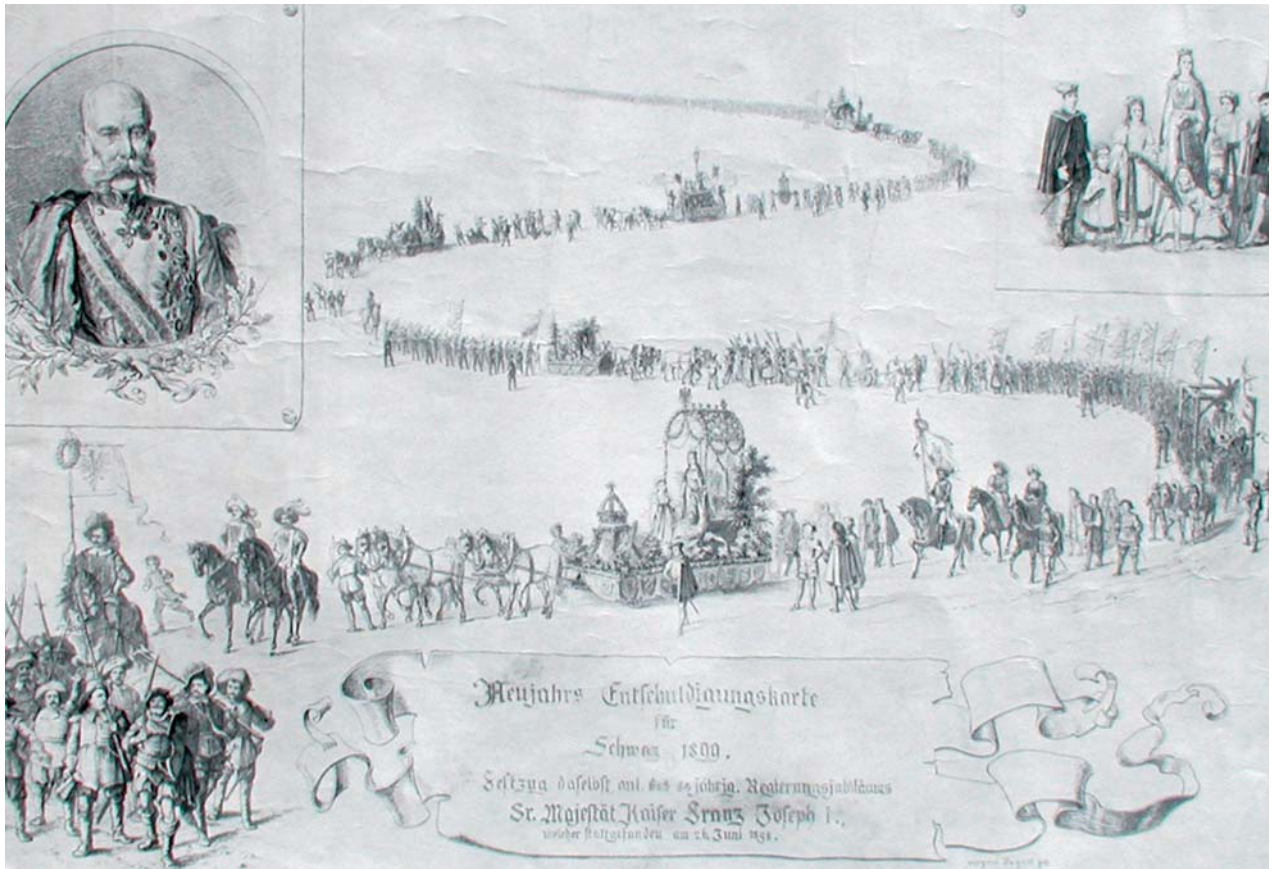 Neujahrs Entschuldigungskarte
für
Schwaz 1899.
Festzug daselbst anl. des 50 jährig. Regierungsjubiläums
Sr. Majestät Kaiser Franz Joseph I.,
welcher stattgefunden am Juni 1898.